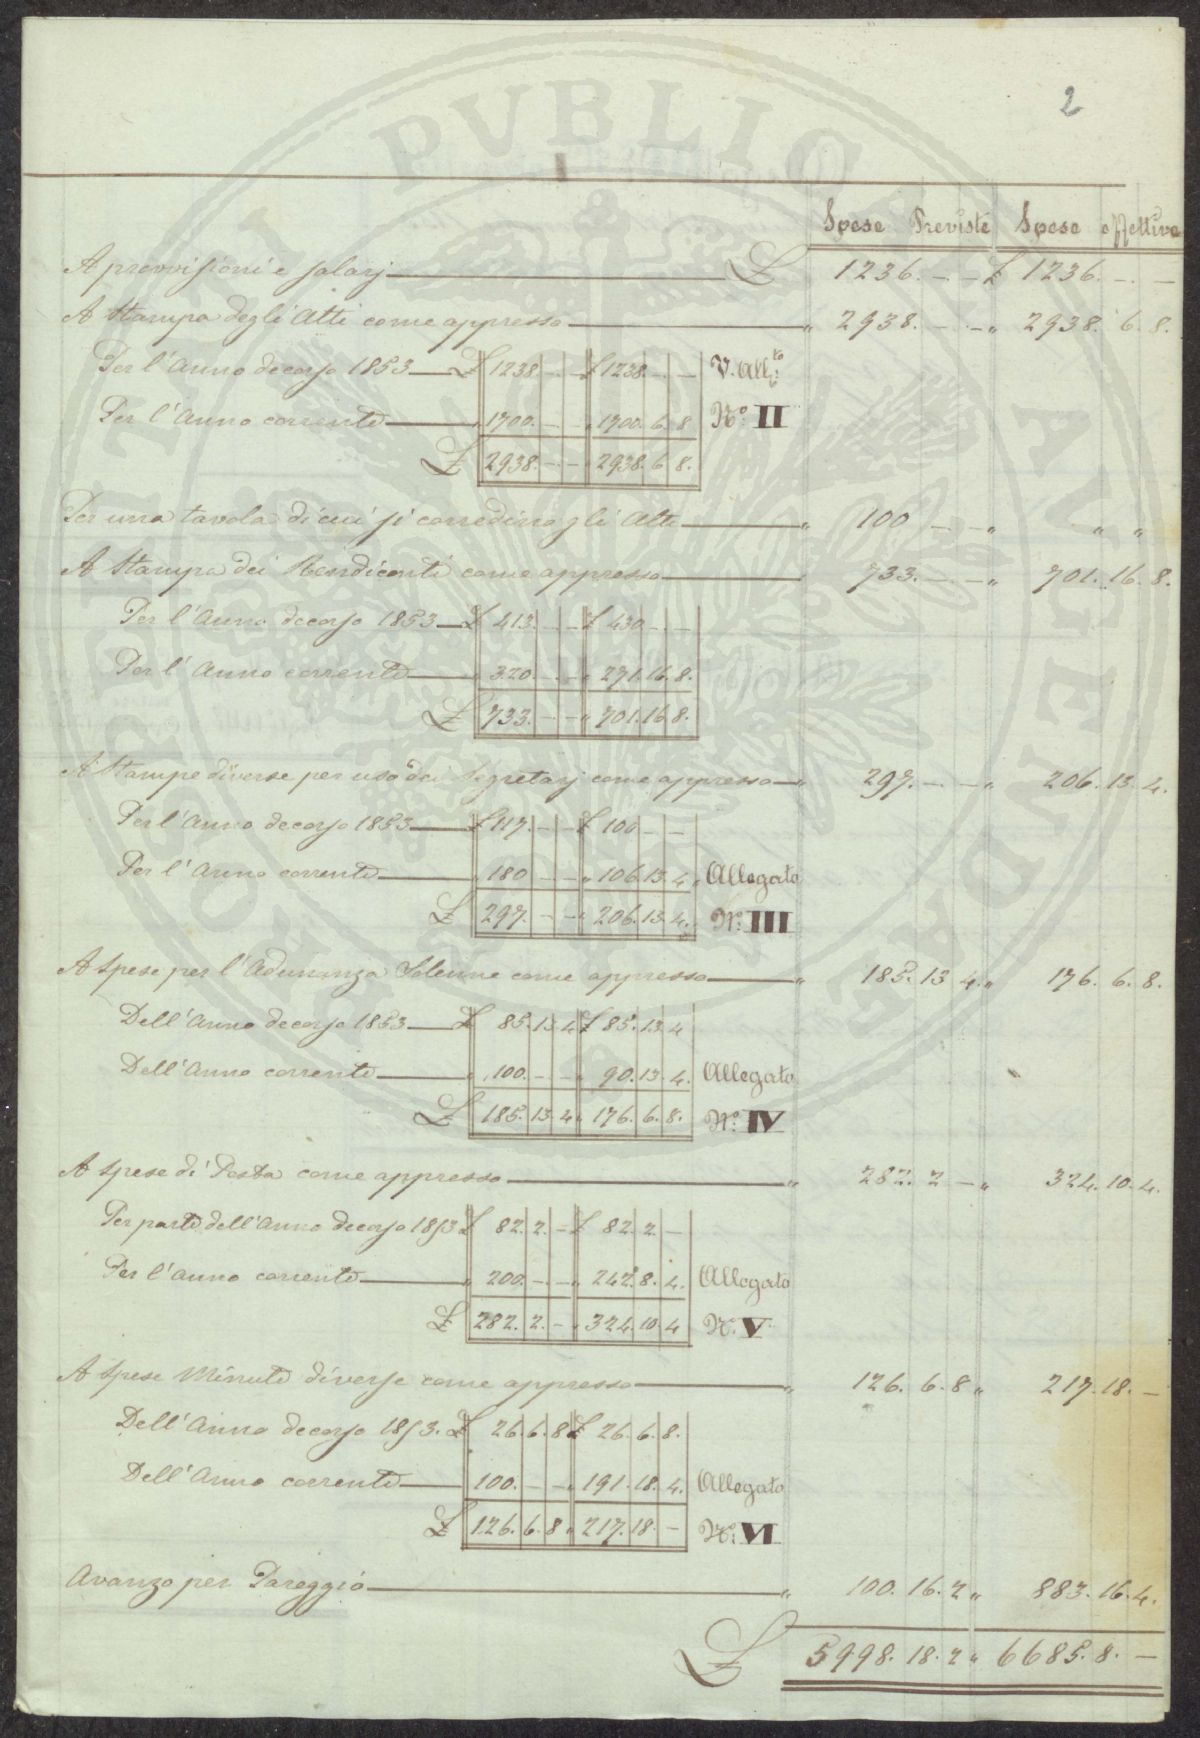 2
Spese Previste Spese effettive
A provvisioni e salarj £ 1236. — — £ 1236. — —
A Stampa degli Atti come appresso " 2938. — — " 2938. 6. 8.
Per l'Anno decorso 1853 £ 1238 — — £ 1238. — — V. All.to
Per l'Anno corrente " 1700. — — " 1700. 6. 8 N.o II
£ 2938. — — " 2938. 6 8.
Per una tavola di cui si corredino gli Atti " 100 — — " " "
A Stampa dei Rendiconti come appresso 733. — — " 701. 16. 8.
Per l'Anno decorso 1853 £ 413. — — £ 430 — —
Per l'Anno corrente " 320. — — " 271. 16. 8.
£ 733. — — " 701. 16 8.
A Stampe diverse per uso dei Segretarj come appresso " 297. — — " 206. 13. 4.
Per l'Anno decorso 1853 £ 117. — — £ 100 — —
Per l'Anno corrente " 180 — — " 106. 13. 4. Allegato
£ 297. — — " 206. 13. 4. N.o III
A Spese per l'Adunanza Solenne come appresso " 185. 13 4. " 176. 6. 8.
Dell'Anno decorso 1853 £ 85. 13 4 £ 85. 13. 4
Dell'Anno corrente " 100. — — " 90. 13. 4. Allegato
£ 185. 13. 4 " 176. 6. 8. N.o IV
A Spese di Posta come appresso " 282. 2 — " 324. 10. 4.
Per parte dell'Anno decorso 1853 £ 82. 2. — £ 82. 2. —
Per l'Anno corrente " 200. — — " 242. 8. 4. Allegato
£ 282. 2. — " 324. 10. 4 N. V.
A Spese Minute diverse come appresso " 126. 6. 8 " 217. 18. —
Dell'Anno decorso 1853. £ 26. 6. 8 £ 26. 6. 8.
Dell'Anno corrente " 100. — — " 191. 18. 4. Allegato
£ 126. 6. 8 " 217. 18. — N.o VI
Avanzo per Pareggio " 100. 16. 2 " 883. 16. 4.
£ 5998. 18. 2 " 6685. 8. —